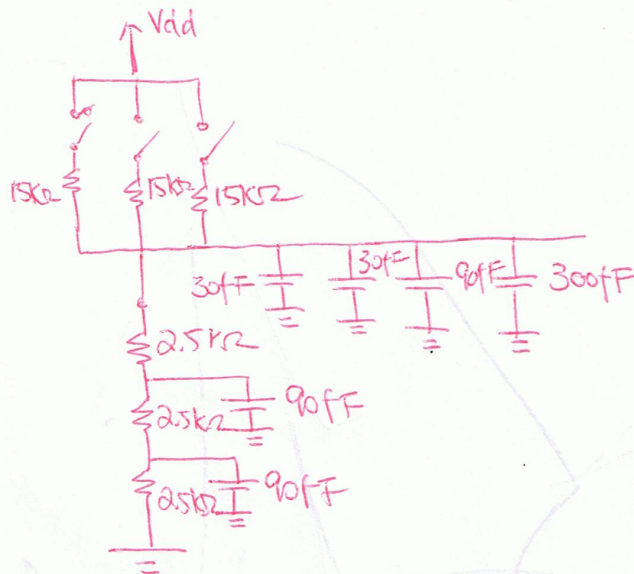 Vdd
15KΩ 15KΩ 15KΩ
30fF 30fF 90fF 300fF
2.5KΩ
90fF
2.5KΩ
90fF
2.5KΩ